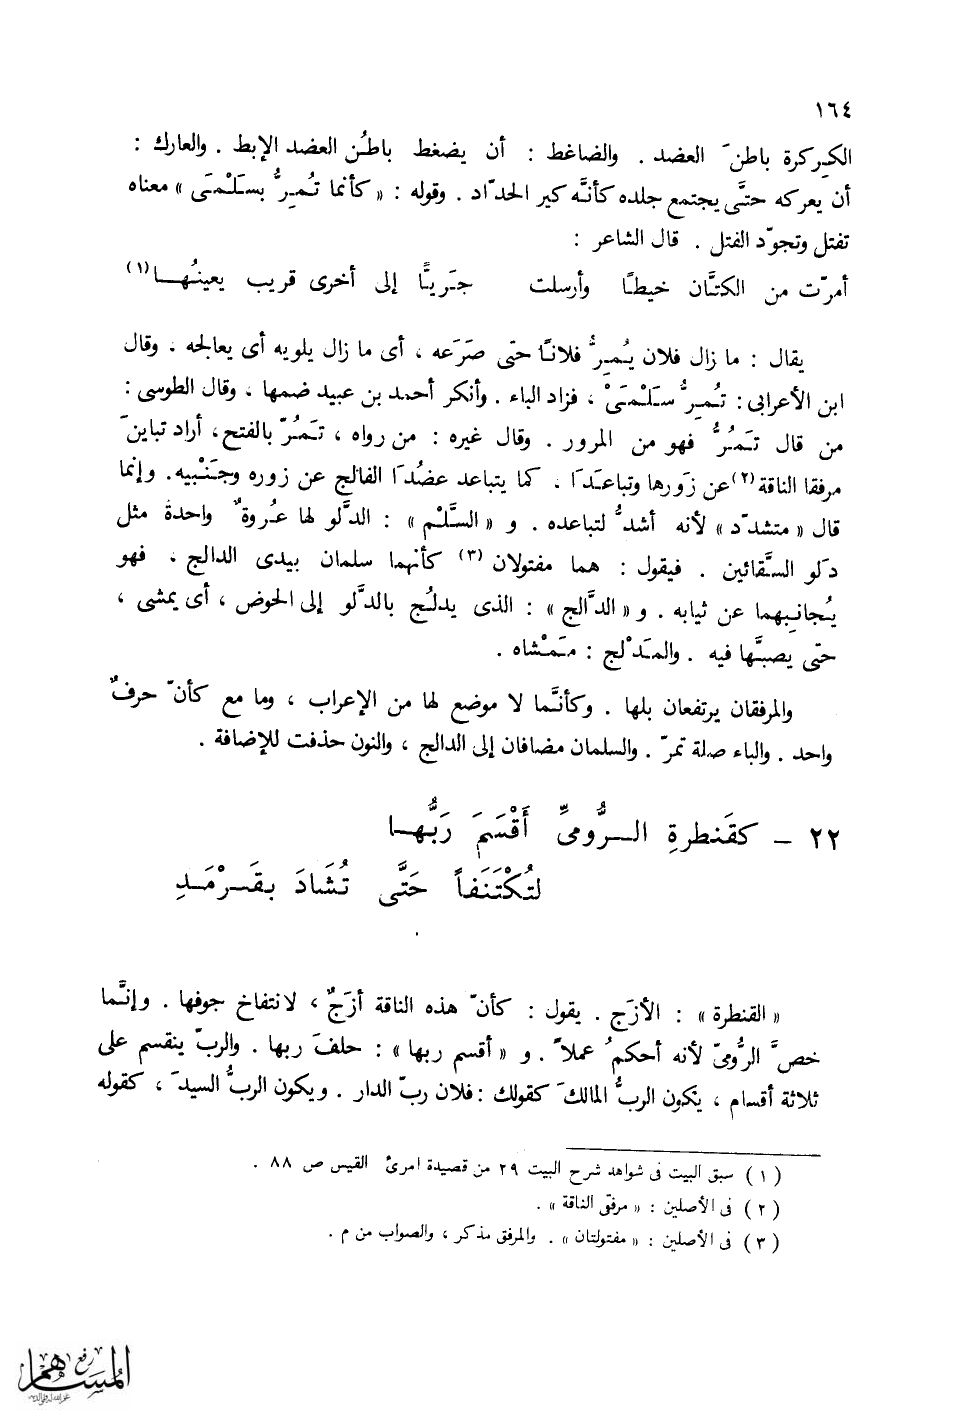 ١٦٤
الكِركرة باطنَ العضد . والضاغط : أن يضغط باطنُ العضد الإبط . والعارك :
أن يعركه حتَّى يجتمع جلده كأنَّه كير الحدّاد . وقوله : « كأنما تُمِرُّ بسَلْمَى » معناه
تفتل وتجوّد الفتل . قال الشاعر :
أمرّت من الكتَّان خيطًا وأرسلت جَريًّا إلى أخرى قريب يعينُهــا(١)
يقال : ما زال فلان يُمِرُّ فلانًا حتى صَرَعه ، أى ما زال يلويه أى يعالجه . وقال
ابن الأعرابى : تُمِرُّ سَلْمَىْ ، فزاد الباء . وأنكر أحمد بن عبيد ضمها ، وقال الطوسى :
من قال تَمُرُّ فهو من المرور . وقال غيره : من رواه ، تَمُرّ بالفتح، أراد تباينَ
مرفقا الناقة(٢) عن زَورها وتباعَدَا . كما يتباعد عضُدَا الفالج عن زوره وجَنْبيه. وإنما
قال « متشدّد » لأنه أشدُّ لتباعده . و « السَّلْم » : الدَّلو لها عُروةٌ واحدة مثل
دَلو السقَّائين . فيقول : هما مفتولان (٣) كأنهما سلمان بيدى الدالج ، فهو
يُجانِبهما عن ثيابه . و « الدَّالج » : الذى يدلُج بالدَّلو إلى الحوض ، أى يمشى ،
حتى يصبَّها فيه . والمَدْلج : مَمْشاه .
والمرفقان يرتفعان بلها . وكأنَّما لا موضع لها من الإعراب ، وما مع كأنّ حرفٌ
واحد . والباء صلة تمرّ . والسلمان مضافان إلى الدالج ، والنون حذفت للإضافة .
٢٢ – كقَنطرةِ الــرُّومىِّ أَقْسَمَ رَبُّهــا
لتُكْتَنَفاً حَتَّى تُشَادَ بقَــرْمَـدِ
« القنطرة » : الأزَج . يقول : كأنّ هذه الناقة أزَجٌ ، لانتفاخ جوفها . وإنَّما
خصَّ الرُّومىّ لأنه أحكمُ عملاً . و « أقسم ربها » : حلفَ ربها . والربّ ينقسم على
ثلاثة أقسام ، يكون الربُّ المالكَ كقولك : فلان ربّ الدار . ويكون الربُّ السيدَ ، كقوله
( ١ ) سبق البيت فى شواهد شرح البيت ٢٩ من قصيدة امرئ القيس ص ٨٨ .
( ٢ ) فى الأصلين : « مرفقى الناقة » .
( ٣ ) فى الأصلين : « مفتولتان » . والمرفق مذكر ، والصواب من م .
رفع
المساهم